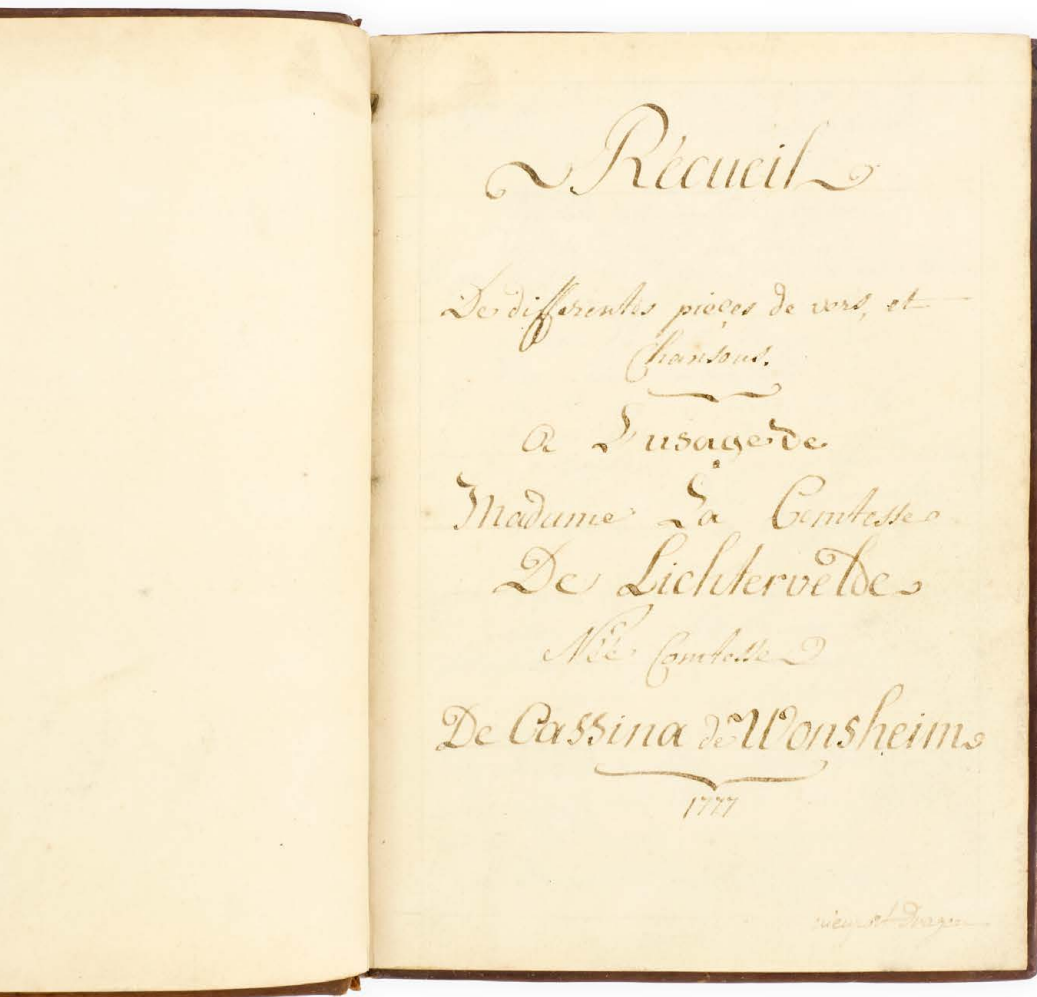 Récueil
De differentes pieçes de vers, et
Chansons.
a L'usage de
Madame La Comtesse
De Lichtervelde
Néé Comtesse
De Cassina de Wonsheim
1777